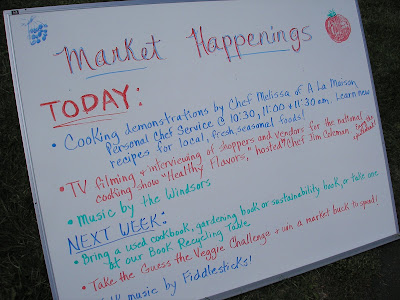 Market Happenings
TODAY:
• Cooking demonstrations by Chef Melissa of A La Maison
Personal Chef Service @ 10:30, 11:00 & 11:30 am. Learn new
recipes for local, fresh, seasonal foods!
• TV filming & interviewing of shoppers and vendors for the national
cooking show "Healthy Flavors," hosted Chef Jim Coleman
• Music by the Windsors
NEXT WEEK:
• Bring a used cookbook, gardening book or sustainability book, or take one
at our Book Recycling Table.
• Take the Guess the Veggie Challenge & win a market buck to spend!
music by Fiddlesticks!